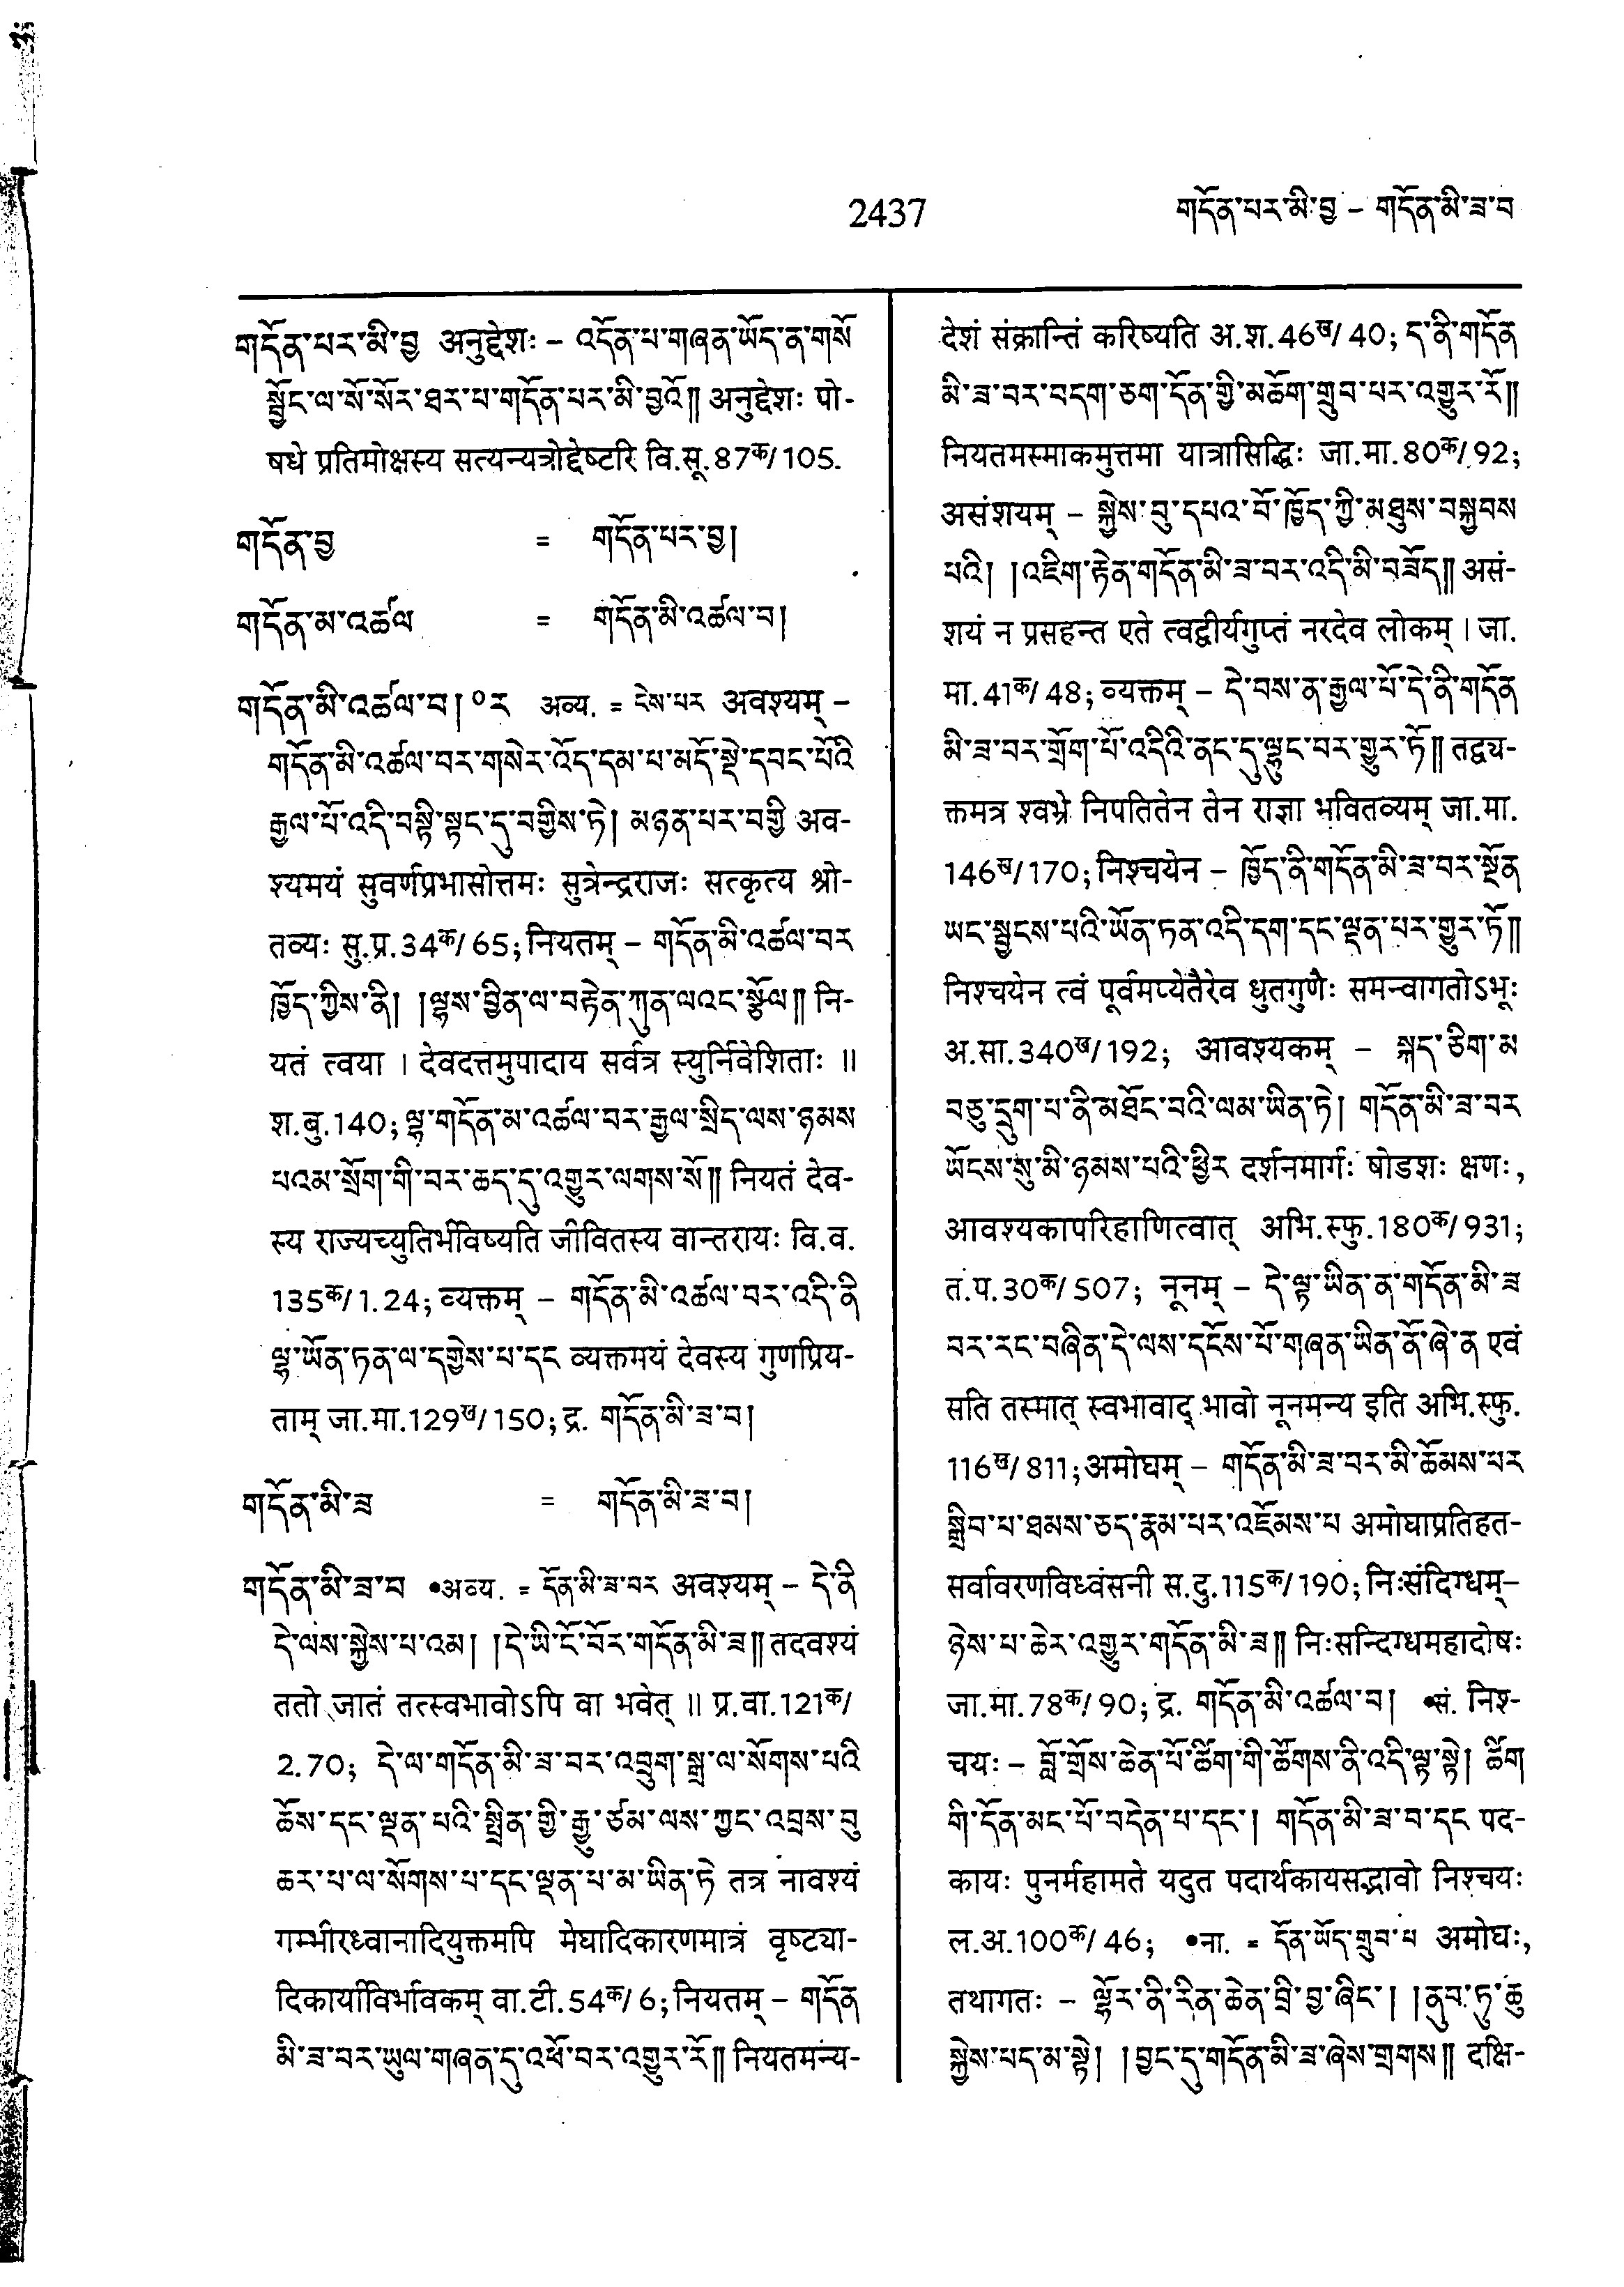 2437
གདོན་པར་མི་བྱ – གདོན་མི་ཟ་བ
གདོན་པར་མི་བྱ अनुद्देशः – འདོན་པ་གཞན་ཡོད་ན་གསོ
སྦྱོང་ལ་སོ་སོར་ཐར་པ་གདོན་པར་མི་བྱའོ།། अनुद्देशः पो-
षधे प्रतिमोक्षस्य सत्यन्यत्रोद्देष्टरि वि.सू.87क/105.
གདོན་བྱ = གདོན་པར་བྱ།
གདོན་མ་འཚལ = གདོན་མི་འཚལ་བ།
གདོན་མི་འཚལ་བ། ०ར अव्य. = ངེས་པར अवश्यम् –
གདོན་མི་འཚལ་བར་གསེར་འོད་དམ་པ་མདོ་སྡེ་དབང་པོའི
རྒྱལ་པོ་འདི་བསྟི་སྟང་དུ་བགྱིས་ཏེ། མཉན་པར་བགྱི अव-
श्यमयं सुवर्णप्रभासोत्तमः सुत्रेन्द्रराजः सत्कृत्य श्रो-
तव्यः सु.प्र.34क/65; नियतम् – གདོན་མི་འཚལ་བར
ཁྱོད་ཀྱིས་ནི། །ལྷས་བྱིན་ལ་བརྟེན་ཀུན་ལའང་སྩོལ།། नि-
यतं त्वया । देवदत्तमुपादाय सर्वत्र स्युर्निवेशिताः ॥
श.बु.140; ལྷ་གདོན་མ་འཚལ་བར་རྒྱལ་སྲིད་ལས་ཉམས
པའམ་སྲོག་གི་བར་ཆད་དུ་འགྱུར་ལགས་སོ།། नियतं देव-
स्य राज्यच्युतिर्भविष्यति जीवितस्य वान्तरायः वि.व.
135क/1.24; व्यक्तम् – གདོན་མི་འཚལ་བར་འདི་ནི
ལྷ་ཡོན་ཏན་ལ་དགྱེས་པ་དང व्यक्तमयं देवस्य गुणप्रिय-
ताम् जा.मा.129ख/150; द्र. གདོན་མི་ཟ་བ།
གདོན་མི་ཟ = གདོན་མི་ཟ་བ།
གདོན་མི་ཟ་བ •अव्य. = དོན་མི་ཟ་བར अवश्यम् – དེ་ནི
དེ་ལས་སྐྱེས་པ་འམ། །དེ་ཡི་ངོ་བོར་གདོན་མི་ཟ།། तदवश्यं
ततो जातं तत्स्वभावोऽपि वा भवेत् ॥ प्र.वा.121क/
2.70; དེ་ལ་གདོན་མི་ཟ་བར་འབྲུག་སྒྲ་ལ་སོགས་པའི
ཆོས་དང་ལྡན་པའི་སྤྲིན་གྱི་རྒྱུ་ཙམ་ལས་ཀྱང་འབྲས་བུ
ཆར་པ་ལ་སོགས་པ་དང་ལྡན་པ་མ་ཡིན་ཏེ तत्र नावश्यं
गम्भीरध्वानादियुक्तमपि मेघादिकारणमात्रं वृष्ट्या-
दिकार्याविर्भावकम् वा.टी.54क/6; नियतम् – གདོན
མི་ཟ་བར་ཡུལ་གཞན་དུ་འཕོ་བར་འགྱུར་རོ།། नियतमन्य-
देशं संक्रान्तिं करिष्यति अ.श.46ख/40; ད་ནི་གདོན
མི་ཟ་བར་བདག་ཅག་དོན་གྱི་མཆོག་གྲུབ་པར་འགྱུར་རོ།།
नियतमस्माकमुत्तमा यात्रासिद्धिः जा.मा.80क/92;
असंशयम् – སྐྱེས་བུ་དཔའ་བོ་ཁྱོད་ཀྱི་མཐུས་བསྐྱབས
པའི། །འཇིག་རྟེན་གདོན་མི་ཟ་བར་འདི་མི་བཟོད།། असं-
शयं न प्रसहन्त एते त्वद्वीर्यगुप्तं नरदेव लोकम् । जा.
मा.41क/48; व्यक्तम् – དེ་བས་ན་རྒྱལ་པོ་དེ་ནི་གདོན
མི་ཟ་བར་གྲོག་པོ་འདིའི་ནང་དུ་ལྷུང་བར་གྱུར་ཏོ།། तद्व्य-
क्तमत्र श्वभ्रे निपतितेन तेन राज्ञा भवितव्यम् जा.मा.
146ख/170; निश्चयेन – ཁྱོད་ནི་གདོན་མི་ཟ་བར་སྔོན
ཡང་སྦྱངས་པའི་ཡོན་ཏན་འདི་དག་དང་ལྡན་པར་གྱུར་ཏོ།།
निश्चयेन त्वं पूर्वमप्येतैरेव धुतगुणैः समन्वागतोऽभूः
अ.सा.340ख/192; आवश्यकम् – སྐད་ཅིག་མ
བཅུ་དྲུག་པ་ནི་མཐོང་བའི་ལམ་ཡིན་ཏེ། གདོན་མི་ཟ་བར
ཡོངས་སུ་མི་ཉམས་པའི་ཕྱིར दर्शनमार्गः षोडशः क्षणः,
आवश्यकापरिहाणित्वात् अभि.स्फु.180क/931;
त.प.30क/507; नूनम् – དེ་ལྟ་ཡིན་ན་གདོན་མི་ཟ
བར་རང་བཞིན་དེ་ལས་དངོས་པོ་གཞན་ཡིན་ནོ་ཞེ་ན एवं
सति तस्मात् स्वभावाद् भावो नूनमन्य इति अभि.स्फु.
116ख/811; अमोघम् – གདོན་མི་ཟ་བར་མི་ཆོམས་པར
སྒྲིབ་པ་ཐམས་ཅད་རྣམ་པར་འཇོམས་པ अमोघाप्रतिहत-
सर्वावरणविध्वंसनी स.दु.115क/190; निःसंदिग्धम्–
ཉེས་པ་ཆེར་འགྱུར་གདོན་མི་ཟ།། निःसन्दिग्धमहादोषः
जा.मा.78क/90; द्र. གདོན་མི་འཚལ་བ། •सं. निश्-
चयः – བློ་གྲོས་ཆེན་པོ་ཚིག་གི་ཚོགས་ནི་འདི་ལྟ་སྟེ། ཚིག
གི་དོན་མང་པོ་བདེན་པ་དང་། གདོན་མི་ཟ་བ་དང पद-
कायः पुनर्महामते यदुत पदार्थकायसद्भावो निश्चयः
ल.अ.100क/46; •ना. = དོན་ཡོད་གྲུབ་པ अमोघः,
तथागतः – ལྷོར་ནི་རིན་ཆེན་བྲི་བྱ་ཞིང་། །ནུབ་ཏུ་ཆུ
སྐྱེས་པད་མ་སྟེ། །བྱང་དུ་གདོན་མི་ཟ་ཞེས་གྲགས།། दक्षि-